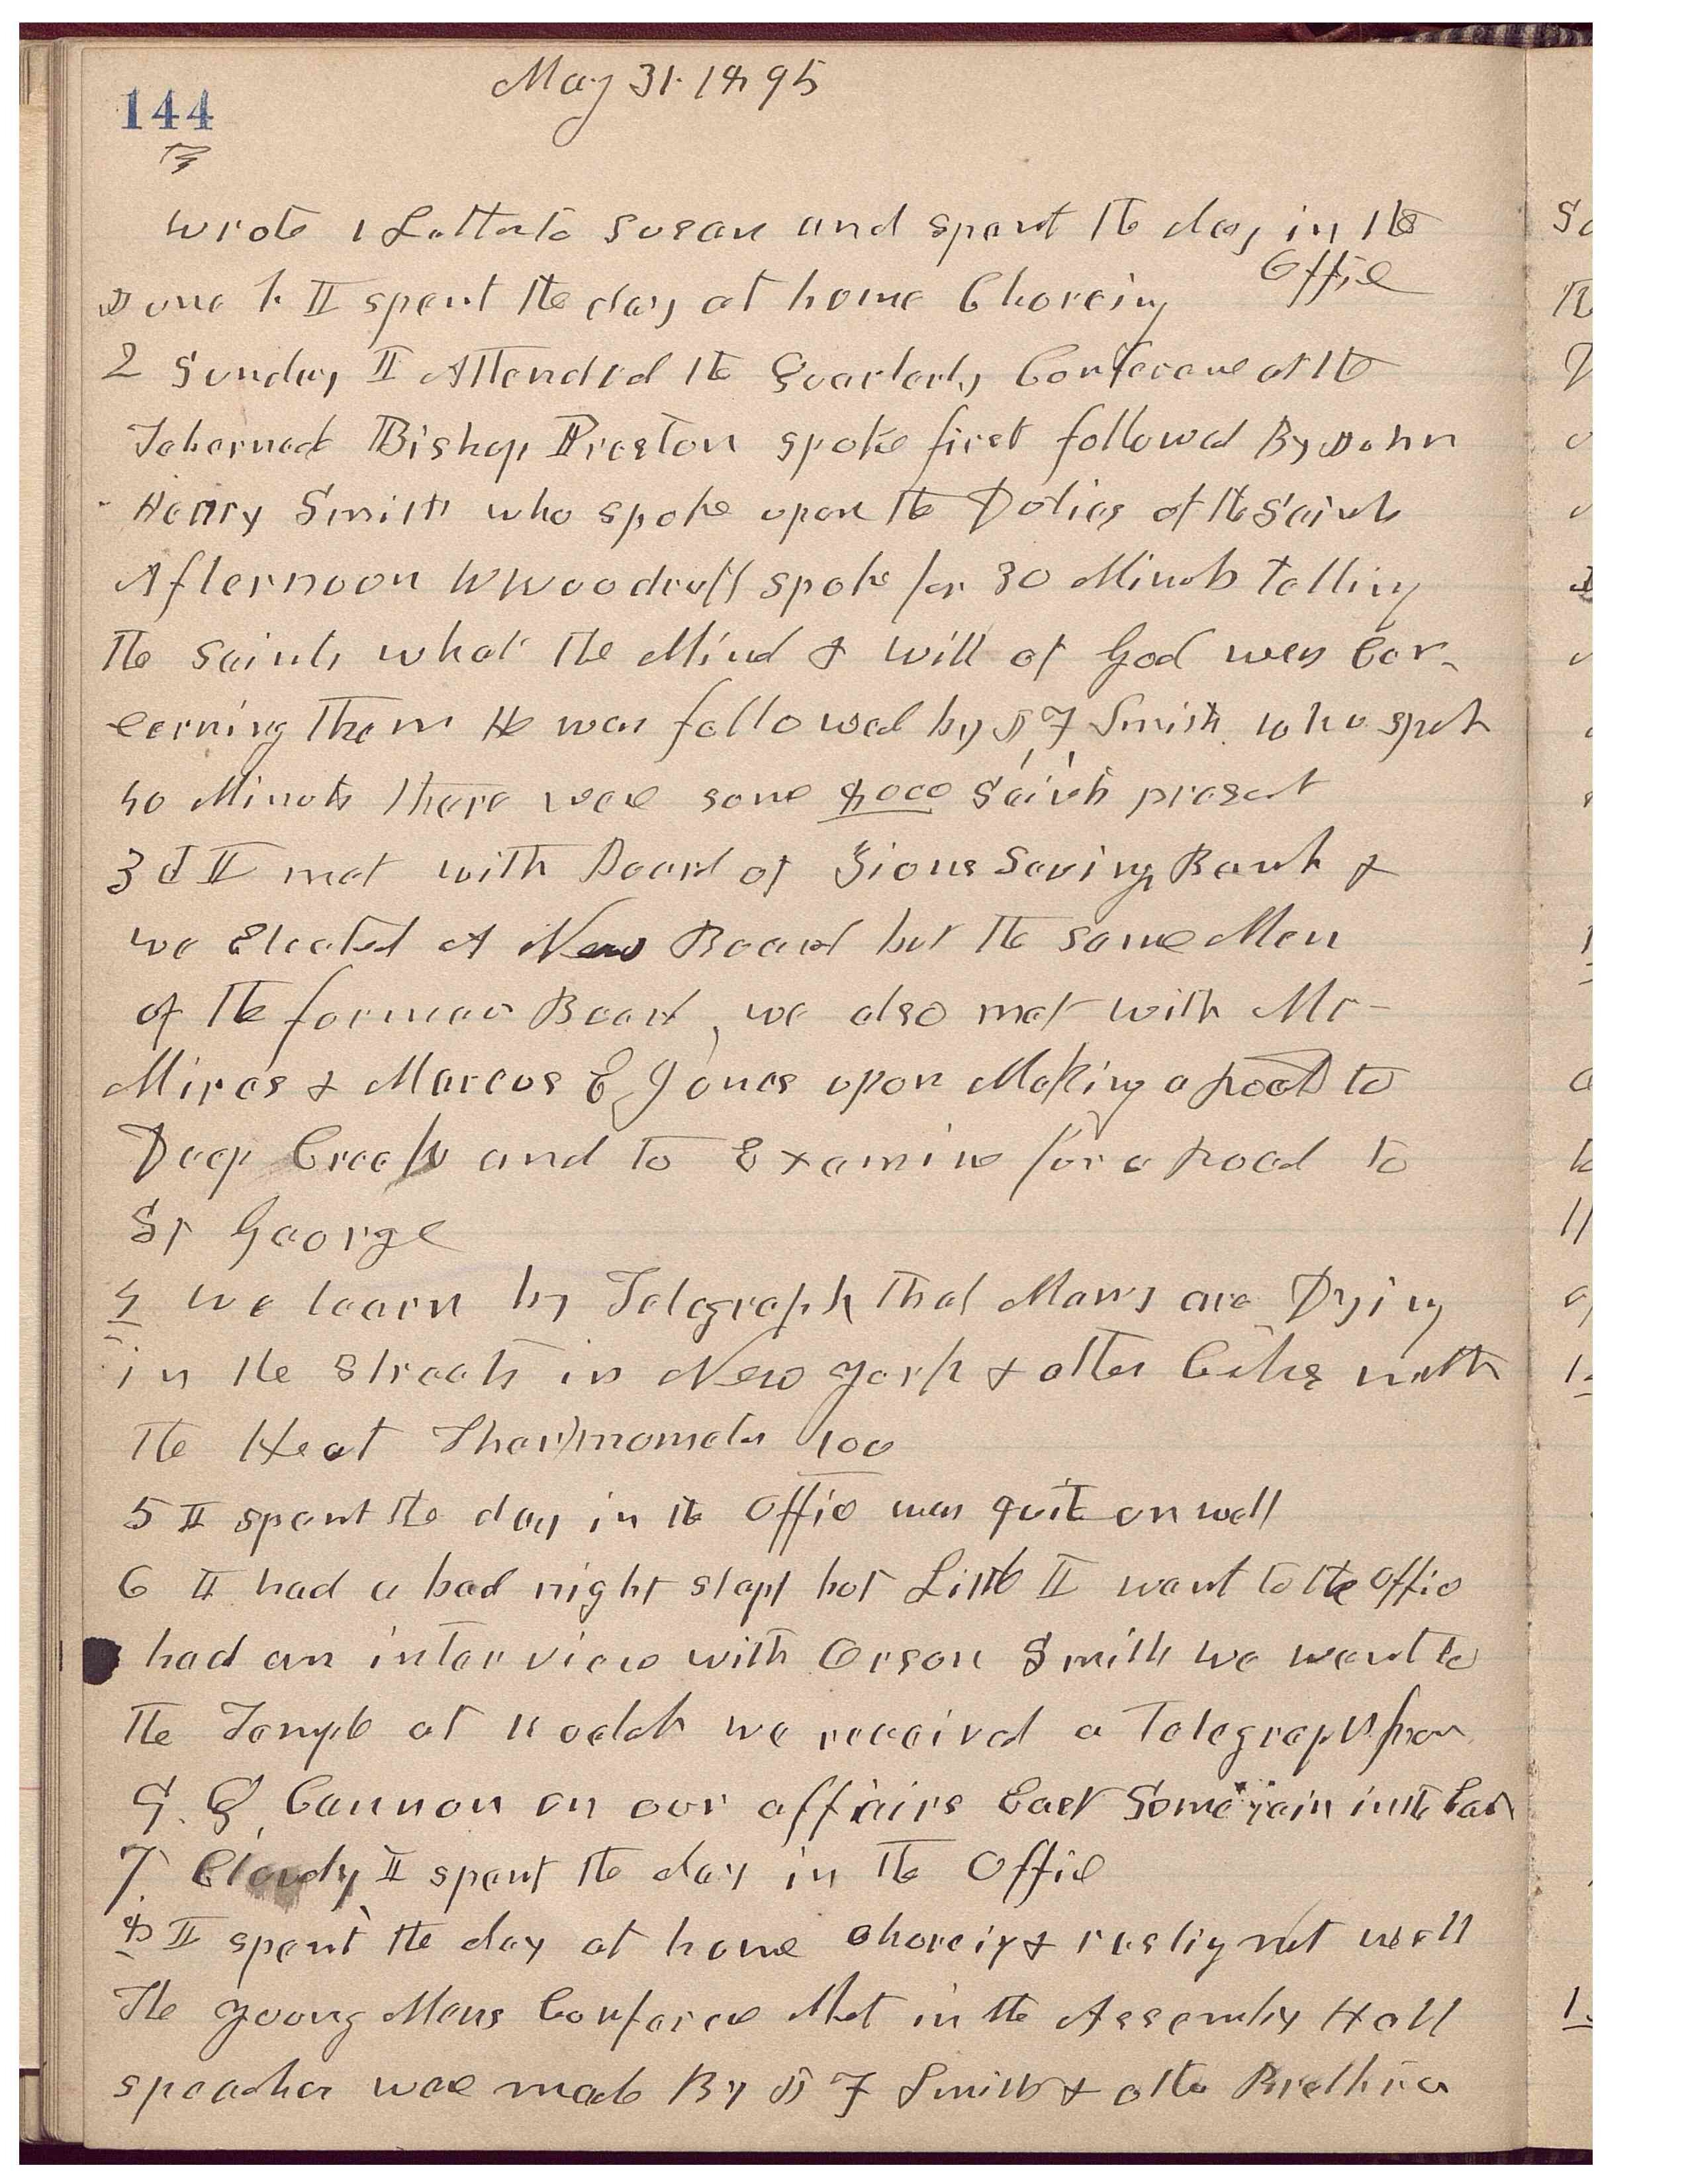 144
May 31. 1895
wrote 1 Letter to Susan and spent the day in the
Office
June 1. I spent the day at home Choreing
2 Sunday I Attended the Quarterly Conference at the
Tabernacle Bishop Preston spoke first followed By John
Henry Smith who spoke upon the Duties of the Saints
Afternoon W Woodruff spoke for 30 Minuts telling
the Saints what the Mind & will of God was Con-
cerning them He was followed by J, F, Smith who spok
40 Minuts there were some 8000 Saints present
3d I met with Board of Zions Saving Bank &
we Elected A New Board but the same Men
of the former Board, we also met with Mr
Mires & Marcus E Jones upon Making a Road to
Deep Creek and to Examine for a Road to
St George
4 we learn by Telegraph that Many are Dying
in the streets in New York & other Cities with
the Heat Thermometer 100
5 I spent the day in the Office was quite unwell
6 I had a bad night slept but Little I went to the office
had an interview with Orson Smith we went to
the Temple at 11 oclok we received a Telegraph from
G. Q. Cannon on our affairs East Some rain in the East
7 Cloudy I spent the day in the Office
8 I spent the day at home choreing & resting not well
The Young Mens Conference Met in the Assembly Hall
speeches were made By J F Smith & other Brethren